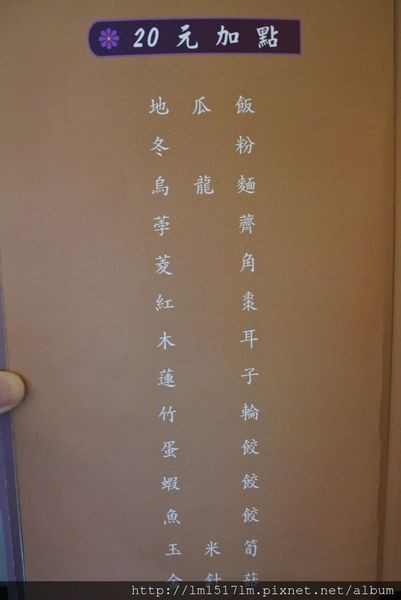 20元加點
地瓜飯
冬粉
烏龍麵
荸薺
菱角
紅棗
木耳
蓮子
竹輪
蛋餃
蝦餃
魚餃
玉米筍
金針菇
http://lml517lm.pixnet.net/album